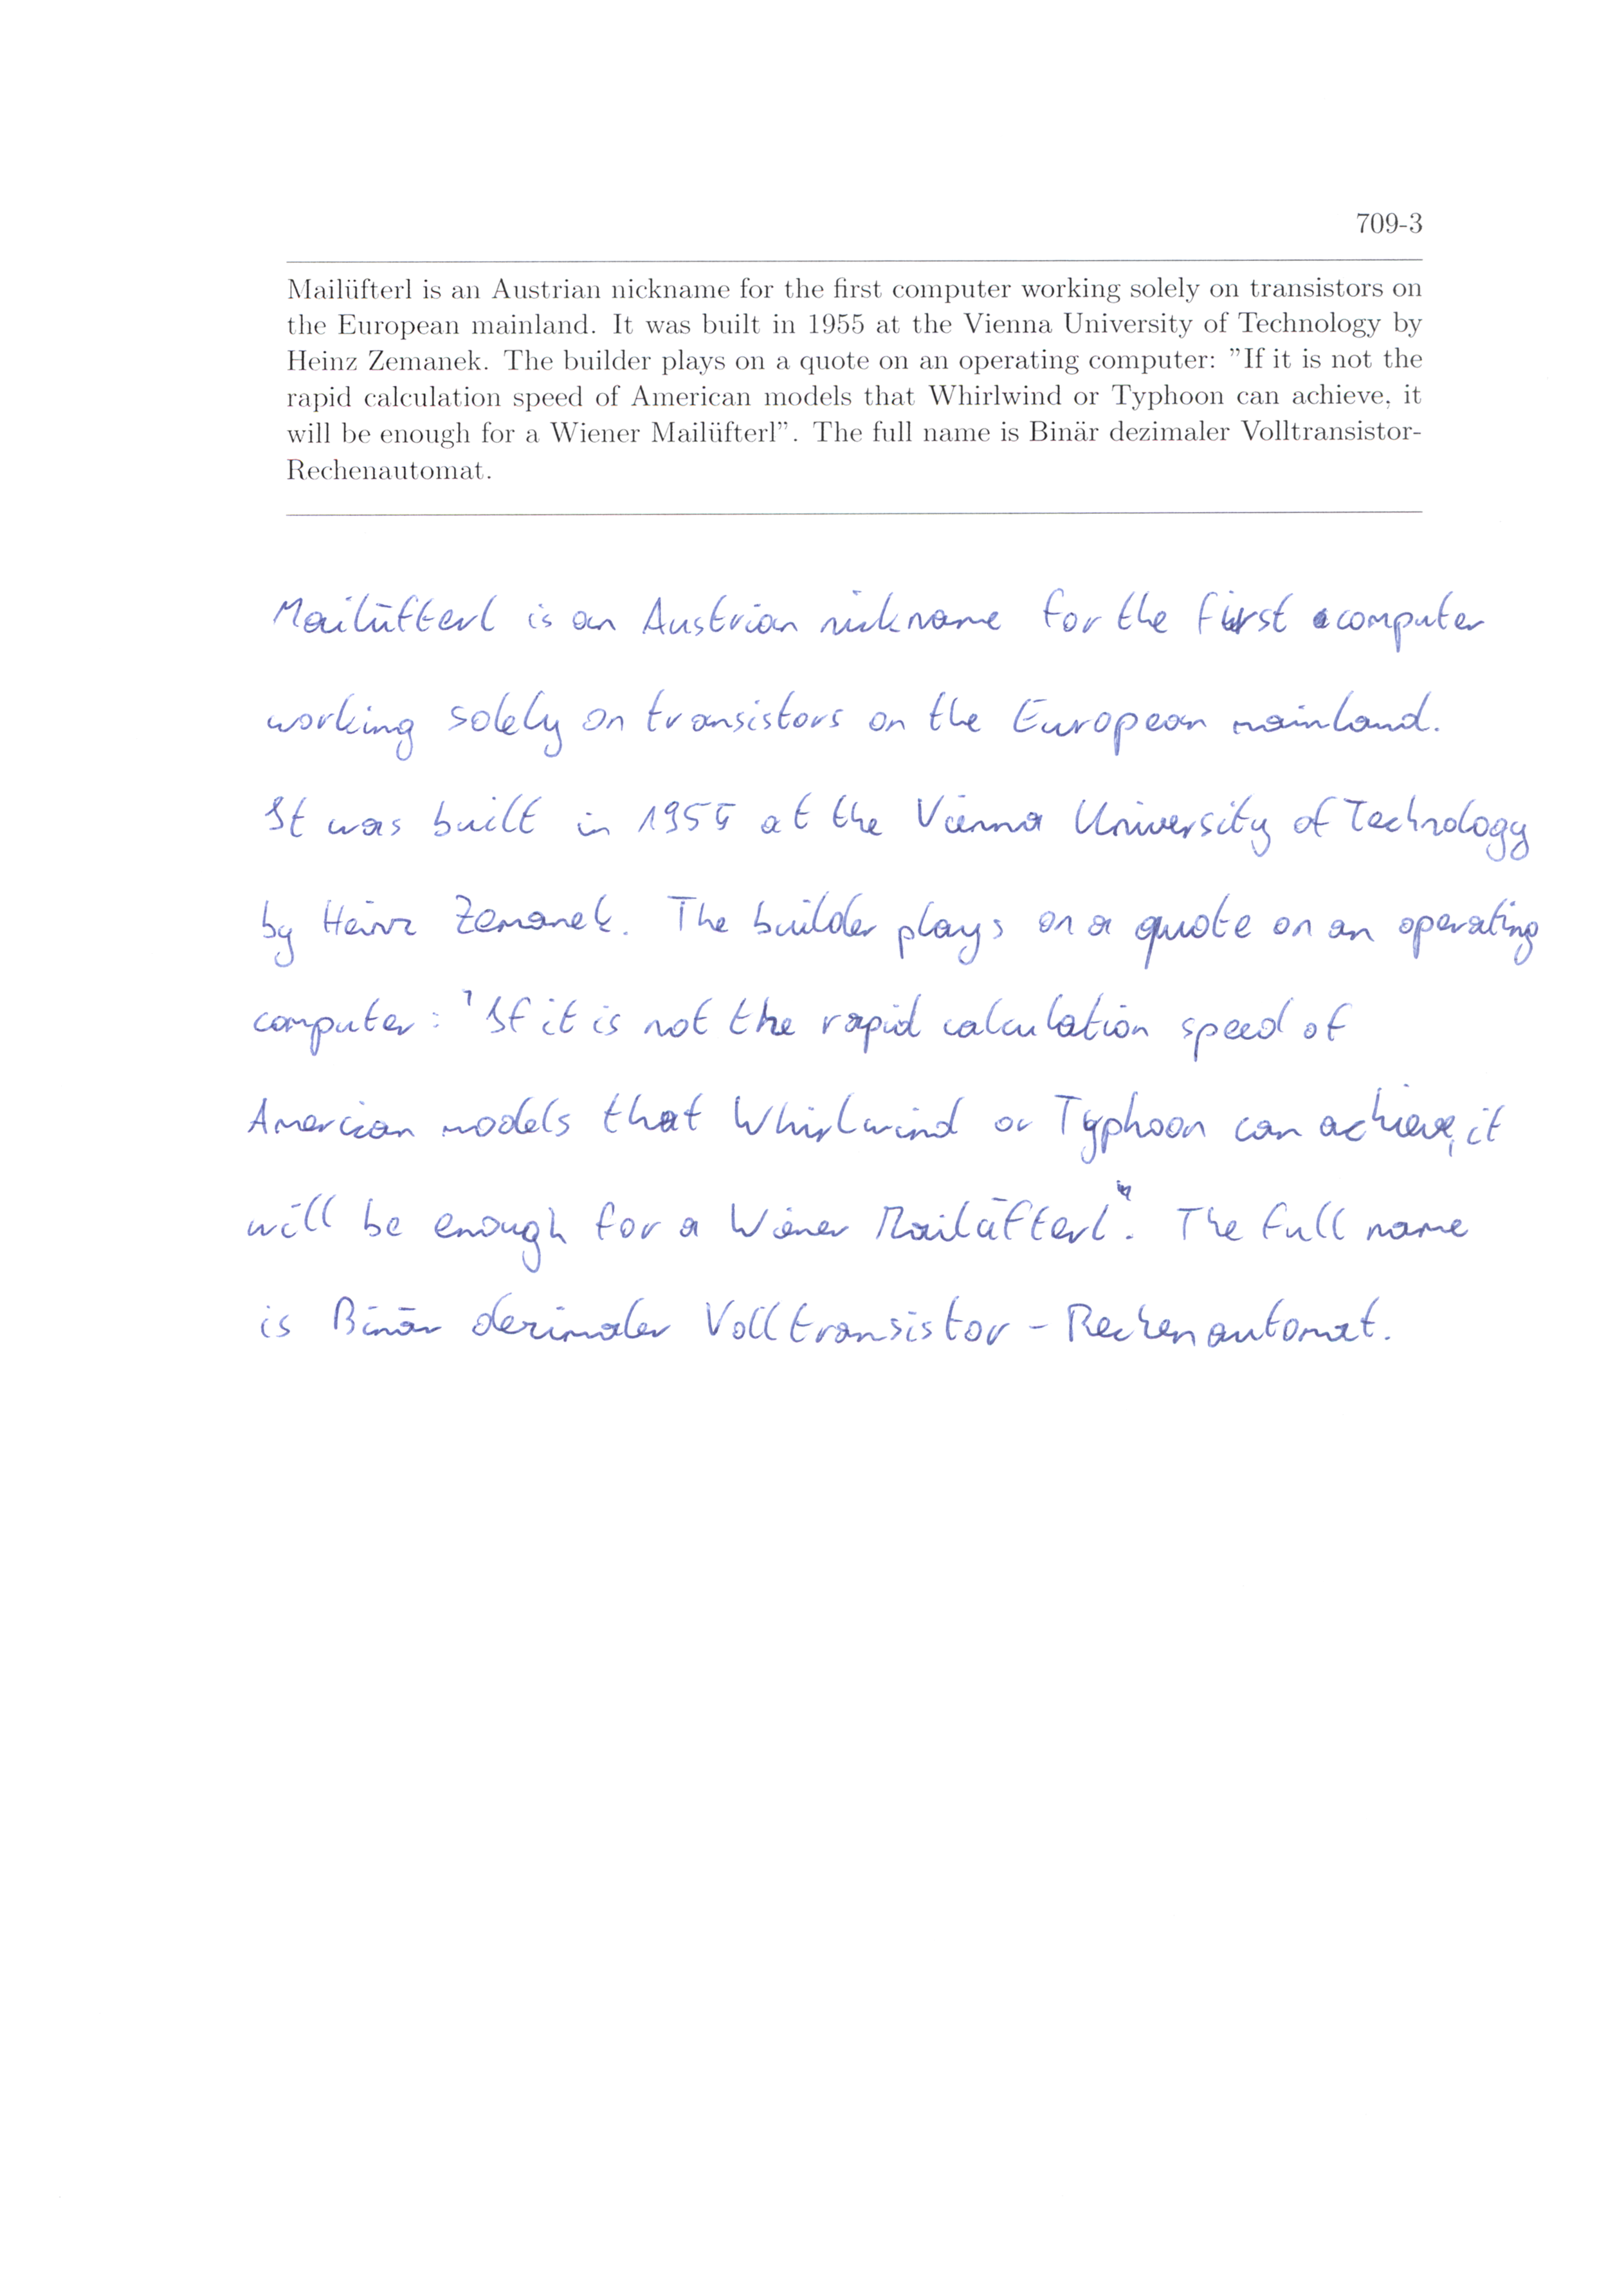 709-3
Mailüfterl is an Austrian nickname for the first computer working solely on transistors on
the European mainland. It was built in 1955 at the Vienna University of Technology by
Heinz Zemanek. The builder plays on a quote on an operating computer: ”If it is not the
rapid calculation speed of American models that Whirlwind or Typhoon can achieve, it
will be enough for a Wiener Mailüfterl”. The full name is Binär dezimaler Volltransistor-
Rechenautomat.
Mailüfterl is an Austrian nickname for the first computer
working solely on transistors on the European mainland.
It was built in 1955 at the Vienna University of Technology
by Heinz Zemanek. The builder plays on a quote on an operating
computer: "If it is not the rapid calculation speed of
Amercian models that Whirlwind or Typhoon can achieve, it
will be enough for a Wiener Mailüfterl". The full name
is Binär dezimaler Volltransistor-Rechenautomat.